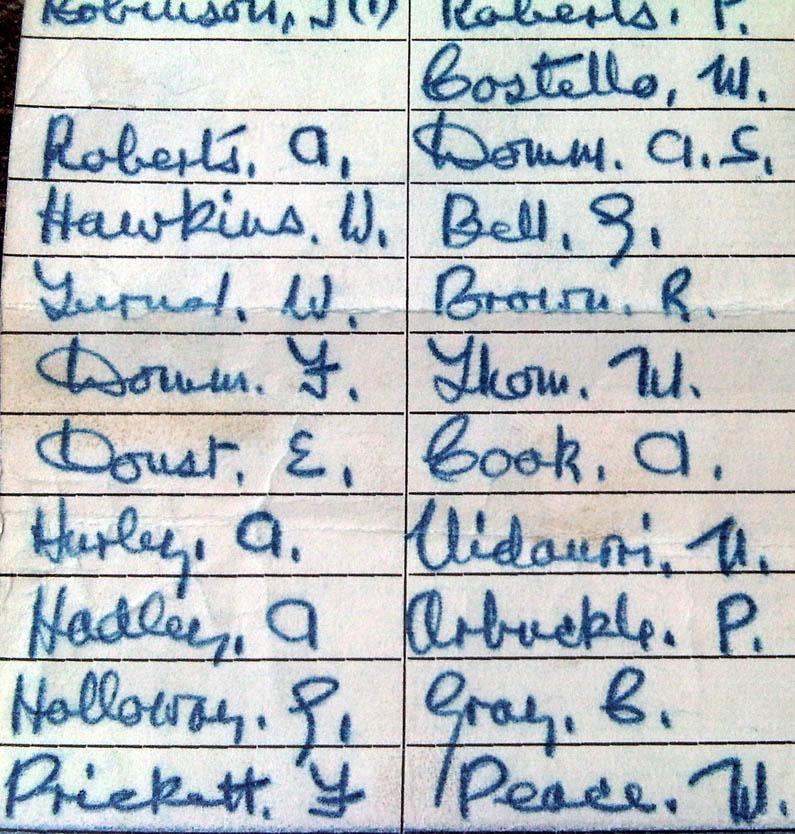 Robinson, J(1) Roberts. P.
Costello, W.
Roberts. A. Domm. A.S.
Hawkins. W. Bell, G.
W. Brown. R.
Domm. F. Thom. W.
Doust. E. Cook. A.
Hurley, A. Vidaurri.
Hadley, A Arbuckle. P.
Holloway. G. Gray, C.
Prickett. F Peace. W.